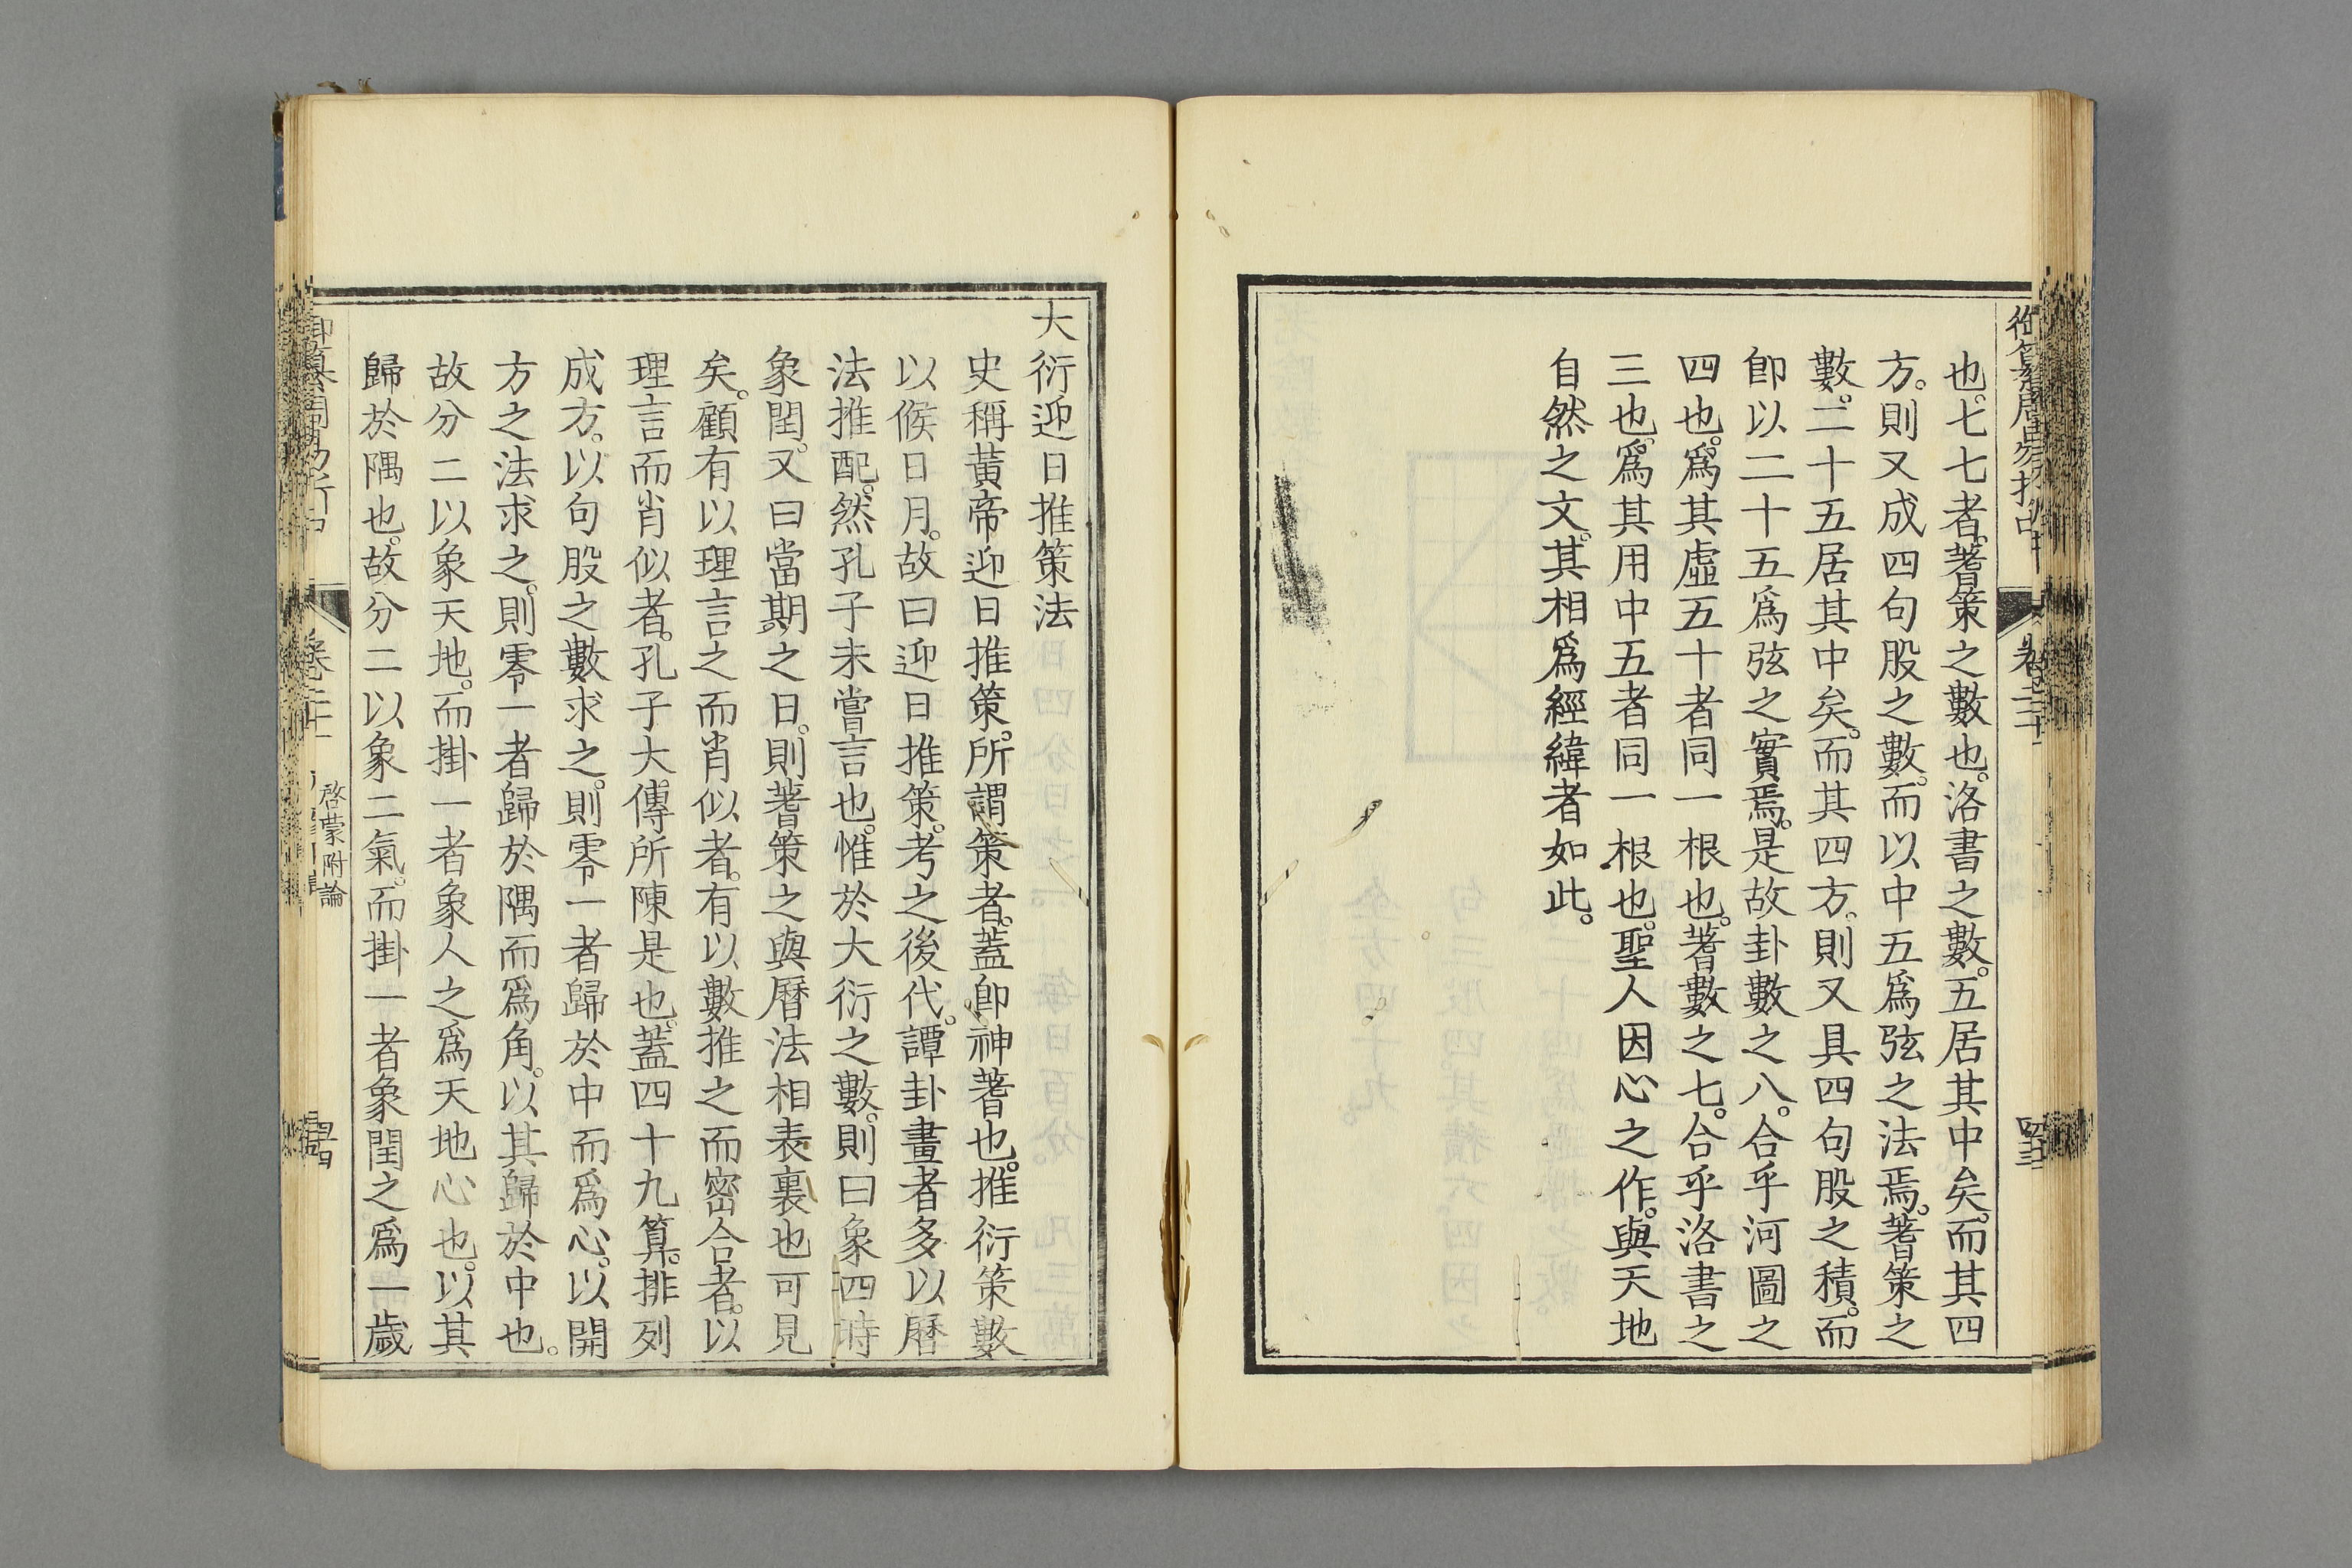 也。七七者。蓍策之數也。洛書之數。五居其中矣。而其四
方。則又成四句股之數。而以中五爲弦之法焉。蓍策之
數。二十五居其中矣。而其四方。則又具四句股之積。而
卽以二十五爲弦之實焉。是故卦數之八。合乎河圖之
四也。爲其虛五十者同一根也。蓍數之七。合乎洛書之
三也。爲其用中五者同一根也。聖人因心之作。與天地
自然之文。其相爲經緯者如此。
大衍迎日推策法
史稱黃帝迎日推策。所謂策者。蓋卽神蓍也。推衍策數
以候日月。故曰迎日推策。考之後代。譚卦畫者多以曆
法推配。然孔子未嘗言也。惟於大衍之數。則曰象四時
象閏。又曰當期之日。則蓍策之與曆法相表裏也可見
矣。顧有以理言之而肖似者。有以數推之而密合者。以
理言而肖似者。孔子大傳所陳是也。蓋四十九算。排列
成方。以句股之數求之。則零一者歸於中而爲心。以開
方之法求之。則零一者歸於隅而爲角。以其歸於中也。
故分二以象天地。而掛一者象人之爲天地心也。以其
歸於隅也。故分二以象二氣。而掛一者象閏之爲一歲
啓蒙附論